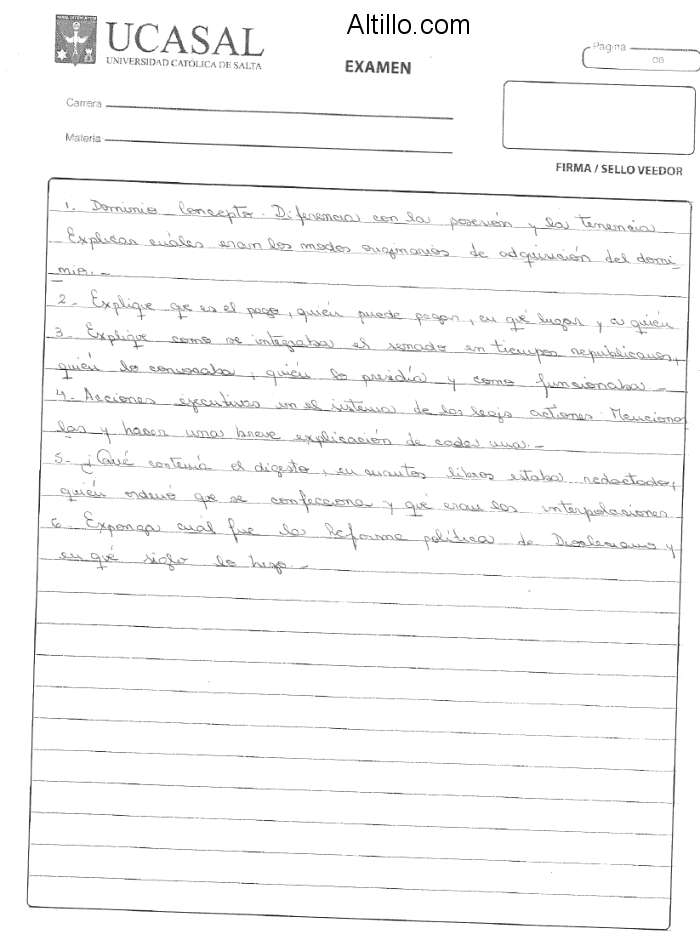 Altillo.com
UCASAL
UNIVERSIDAD CATOLICA DE SALTA
EXAMEN
Pagina
Carrera
Materia
FIRMA / SELLO VEEDOR
1. Dominio Concepto. Diferencia con la posesión y la tenencia
Explicar cuáles eran los modos originarios de adquisición del domi-
nio.-
2- Explique que es el pago, quién puede pagar, en qué lugar y a quién
3. Explique como se integraba el senado en tiempos republicanos,
quién lo convocaba, quién lo presidía y como funcionaba-
4- Acciones ejecutivas en el sistema de las legis actiones. Menciona
las y hacer una breve explicación de cada una.-
5- ¿Qué contenía el digesto, en cuantos libros estaba redactado,
quién ordenó que se confecciona y qué eran las interpolaciones
6. Exponga cual fue la Reforma política de Diocleciano y
en qué siglo lo hizo-